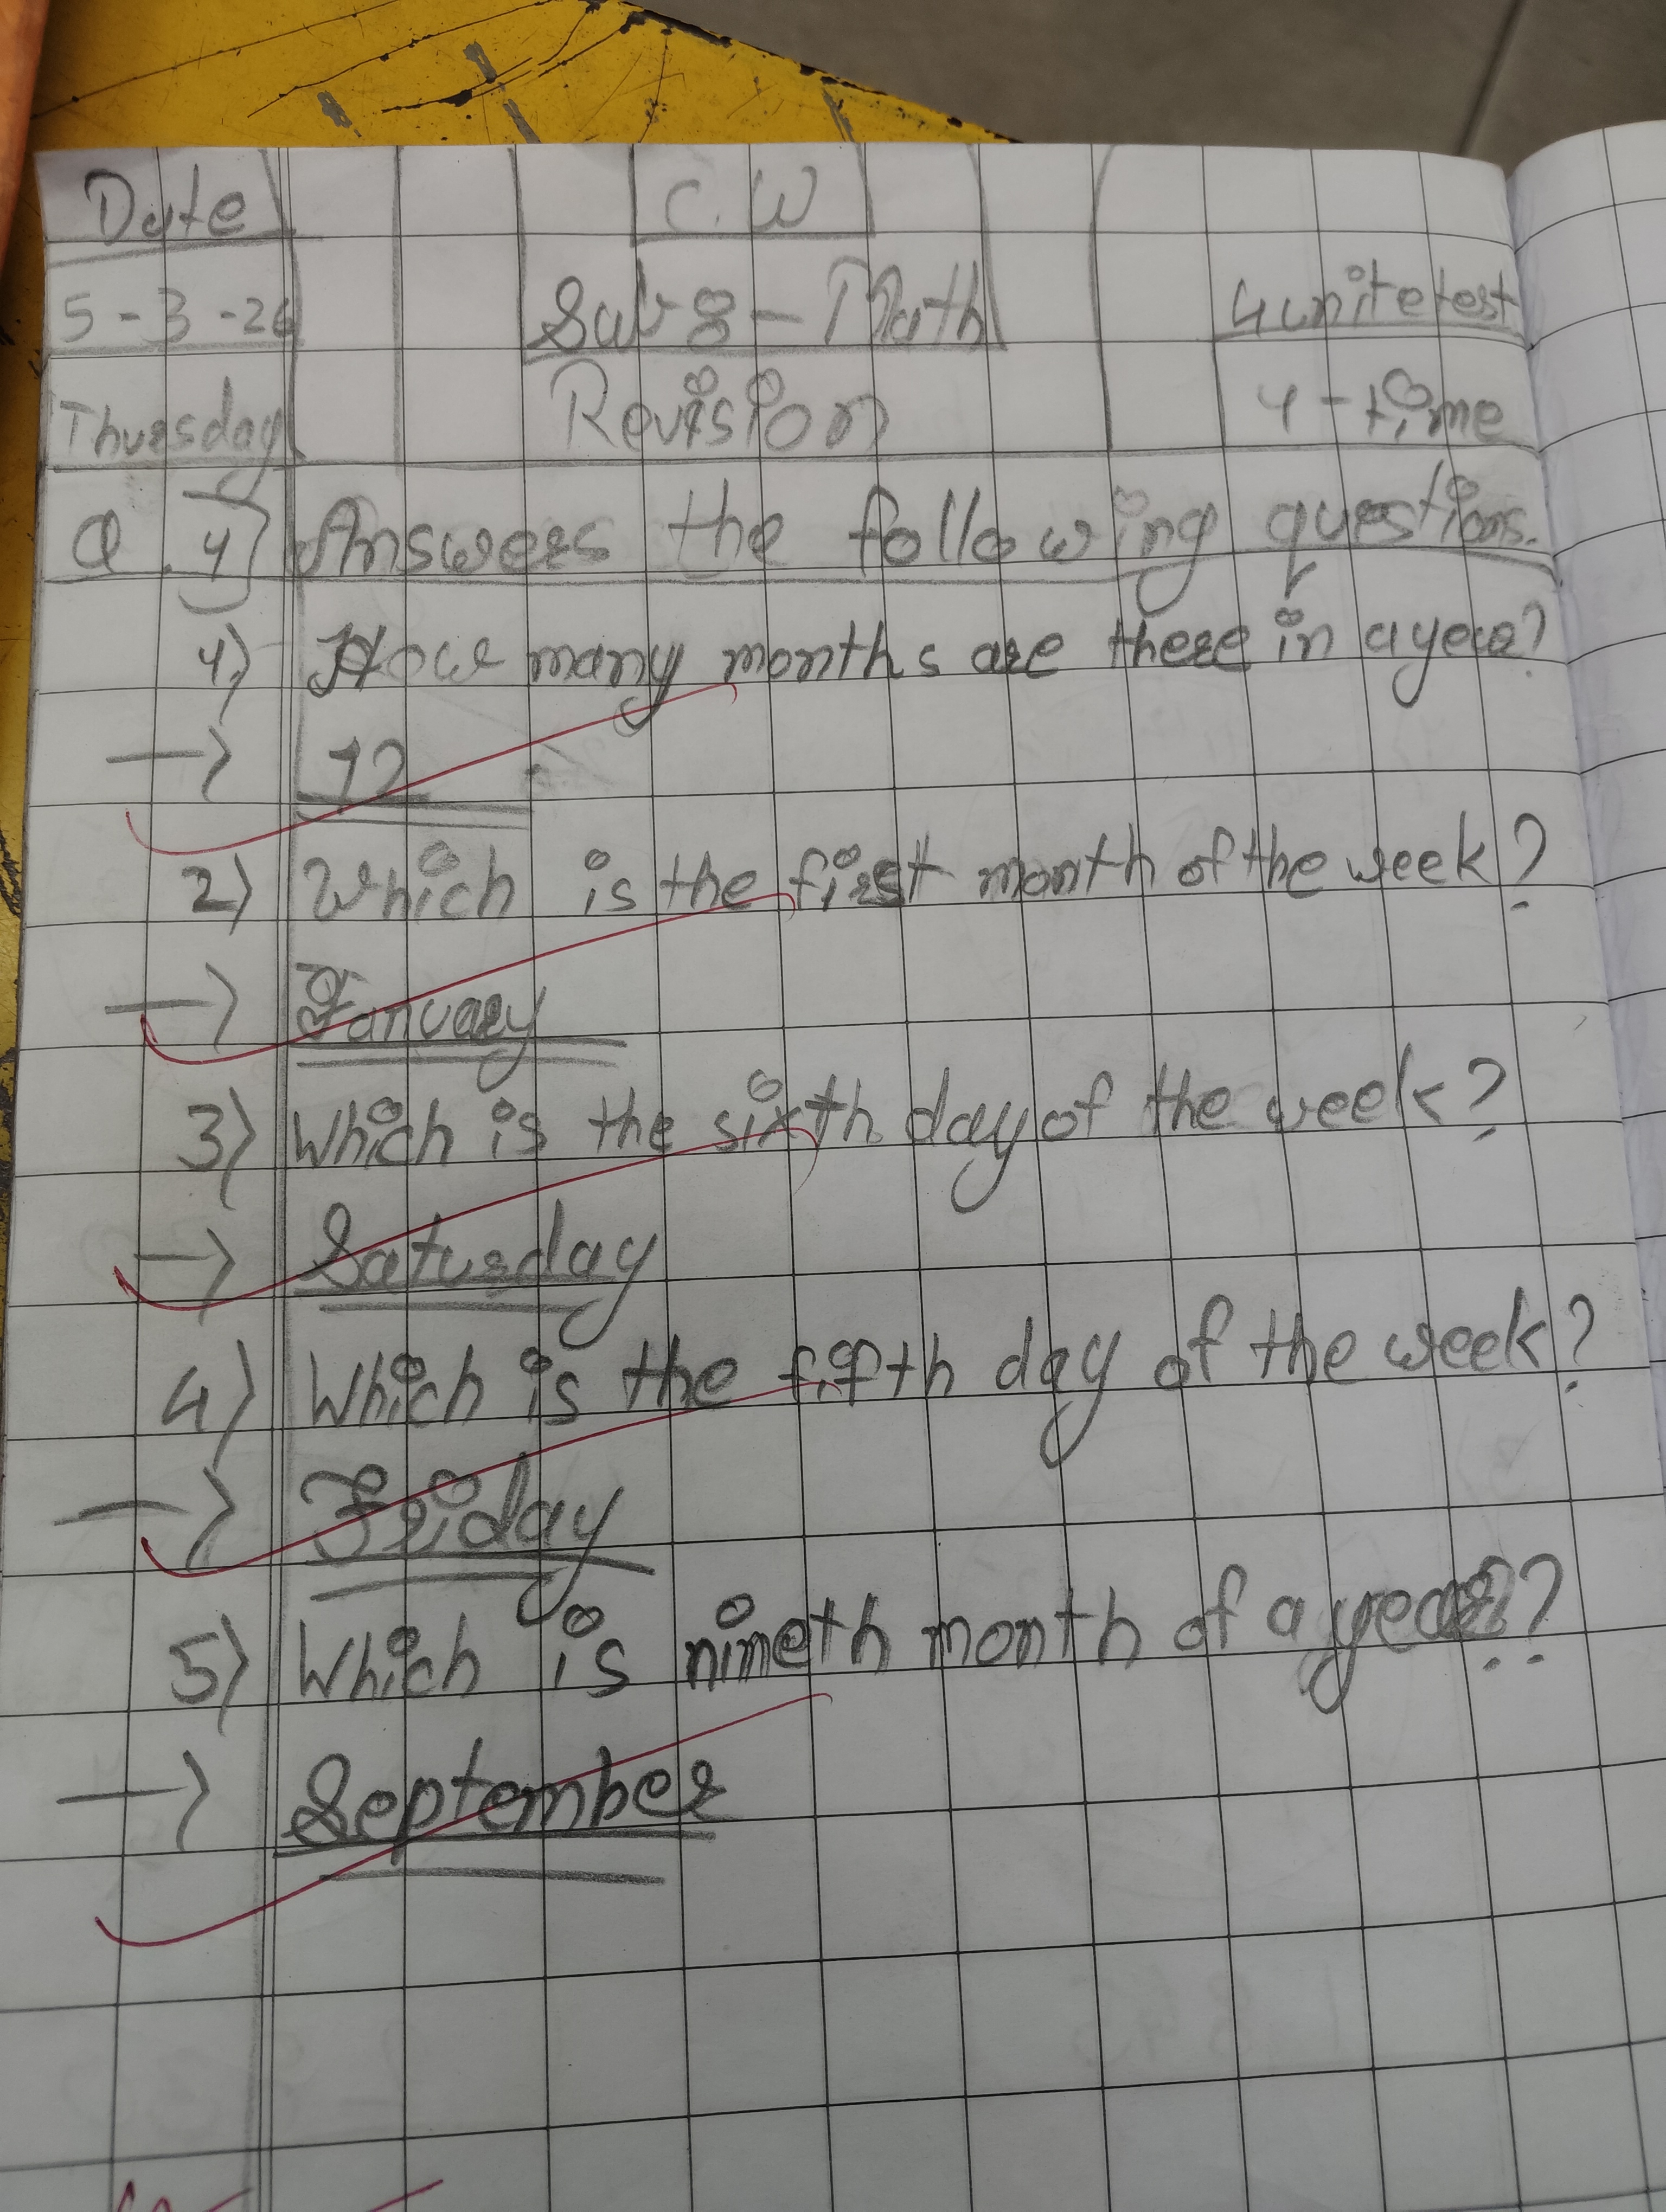 Date C.W
5-3-26 Sub:- Math 4 unite test
Thursday Revision 1-time
Q.1) Answers the following questions.
1) How many months are there in a year?
→ 12
2) Which is the first month of the week?
→ January
3) Which is the sixth day of the week?
→ Saturday
4) Which is the fifth day of the week?
→ Friday
5) Which is nineth month of a year??
→ September